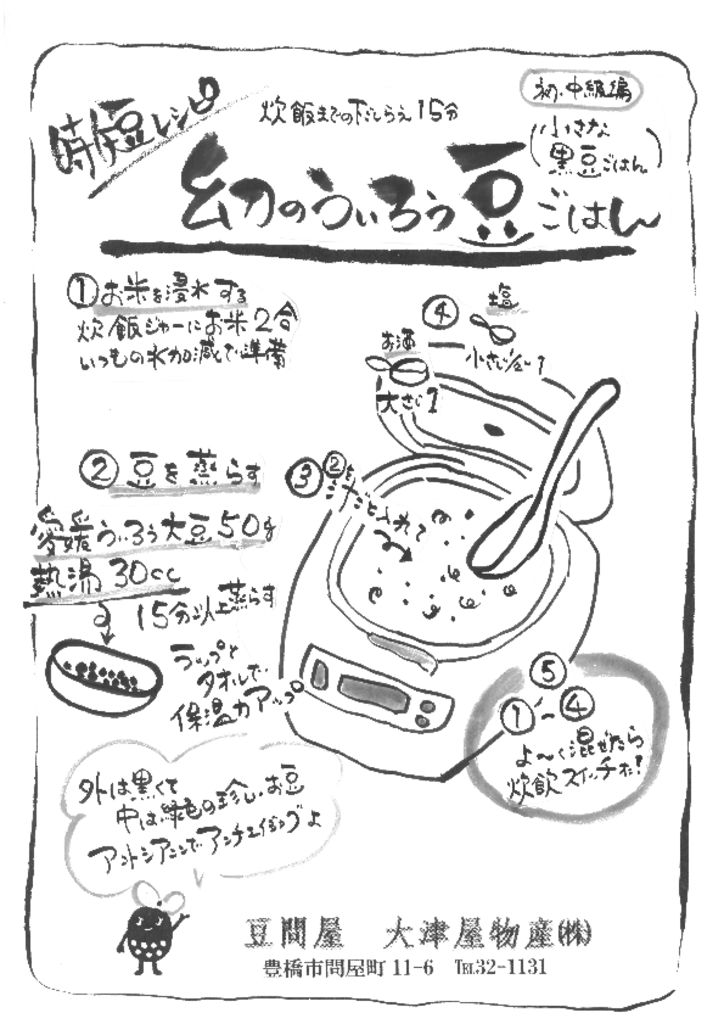 時短豆レシピ
炊飯までの下ごしらえ15分
初・中級編
幻のういろう豆ごはん
(小さな
黒豆ごはん)
①お米を浸水する
炊飯ジャーにお米2合
いつもの水加減で準備
②豆を蒸らす
愛媛ういろう大豆50g
熱湯30cc
15分以上蒸らす
ラップと
タオルで
保温力アップ
③②を
汁ごと入れて
④
塩
小さじ1/2~1
お酒
大さじ1
⑤
①~④
よ~く混ぜたら
炊飯スイッチオン!
外は黒くて
中は緑色の珍しいお豆
アントシアニンでアンチエイジングよ
豆問屋 大津屋物産㈱
豊橋市問屋町11-6 ℡32-1131